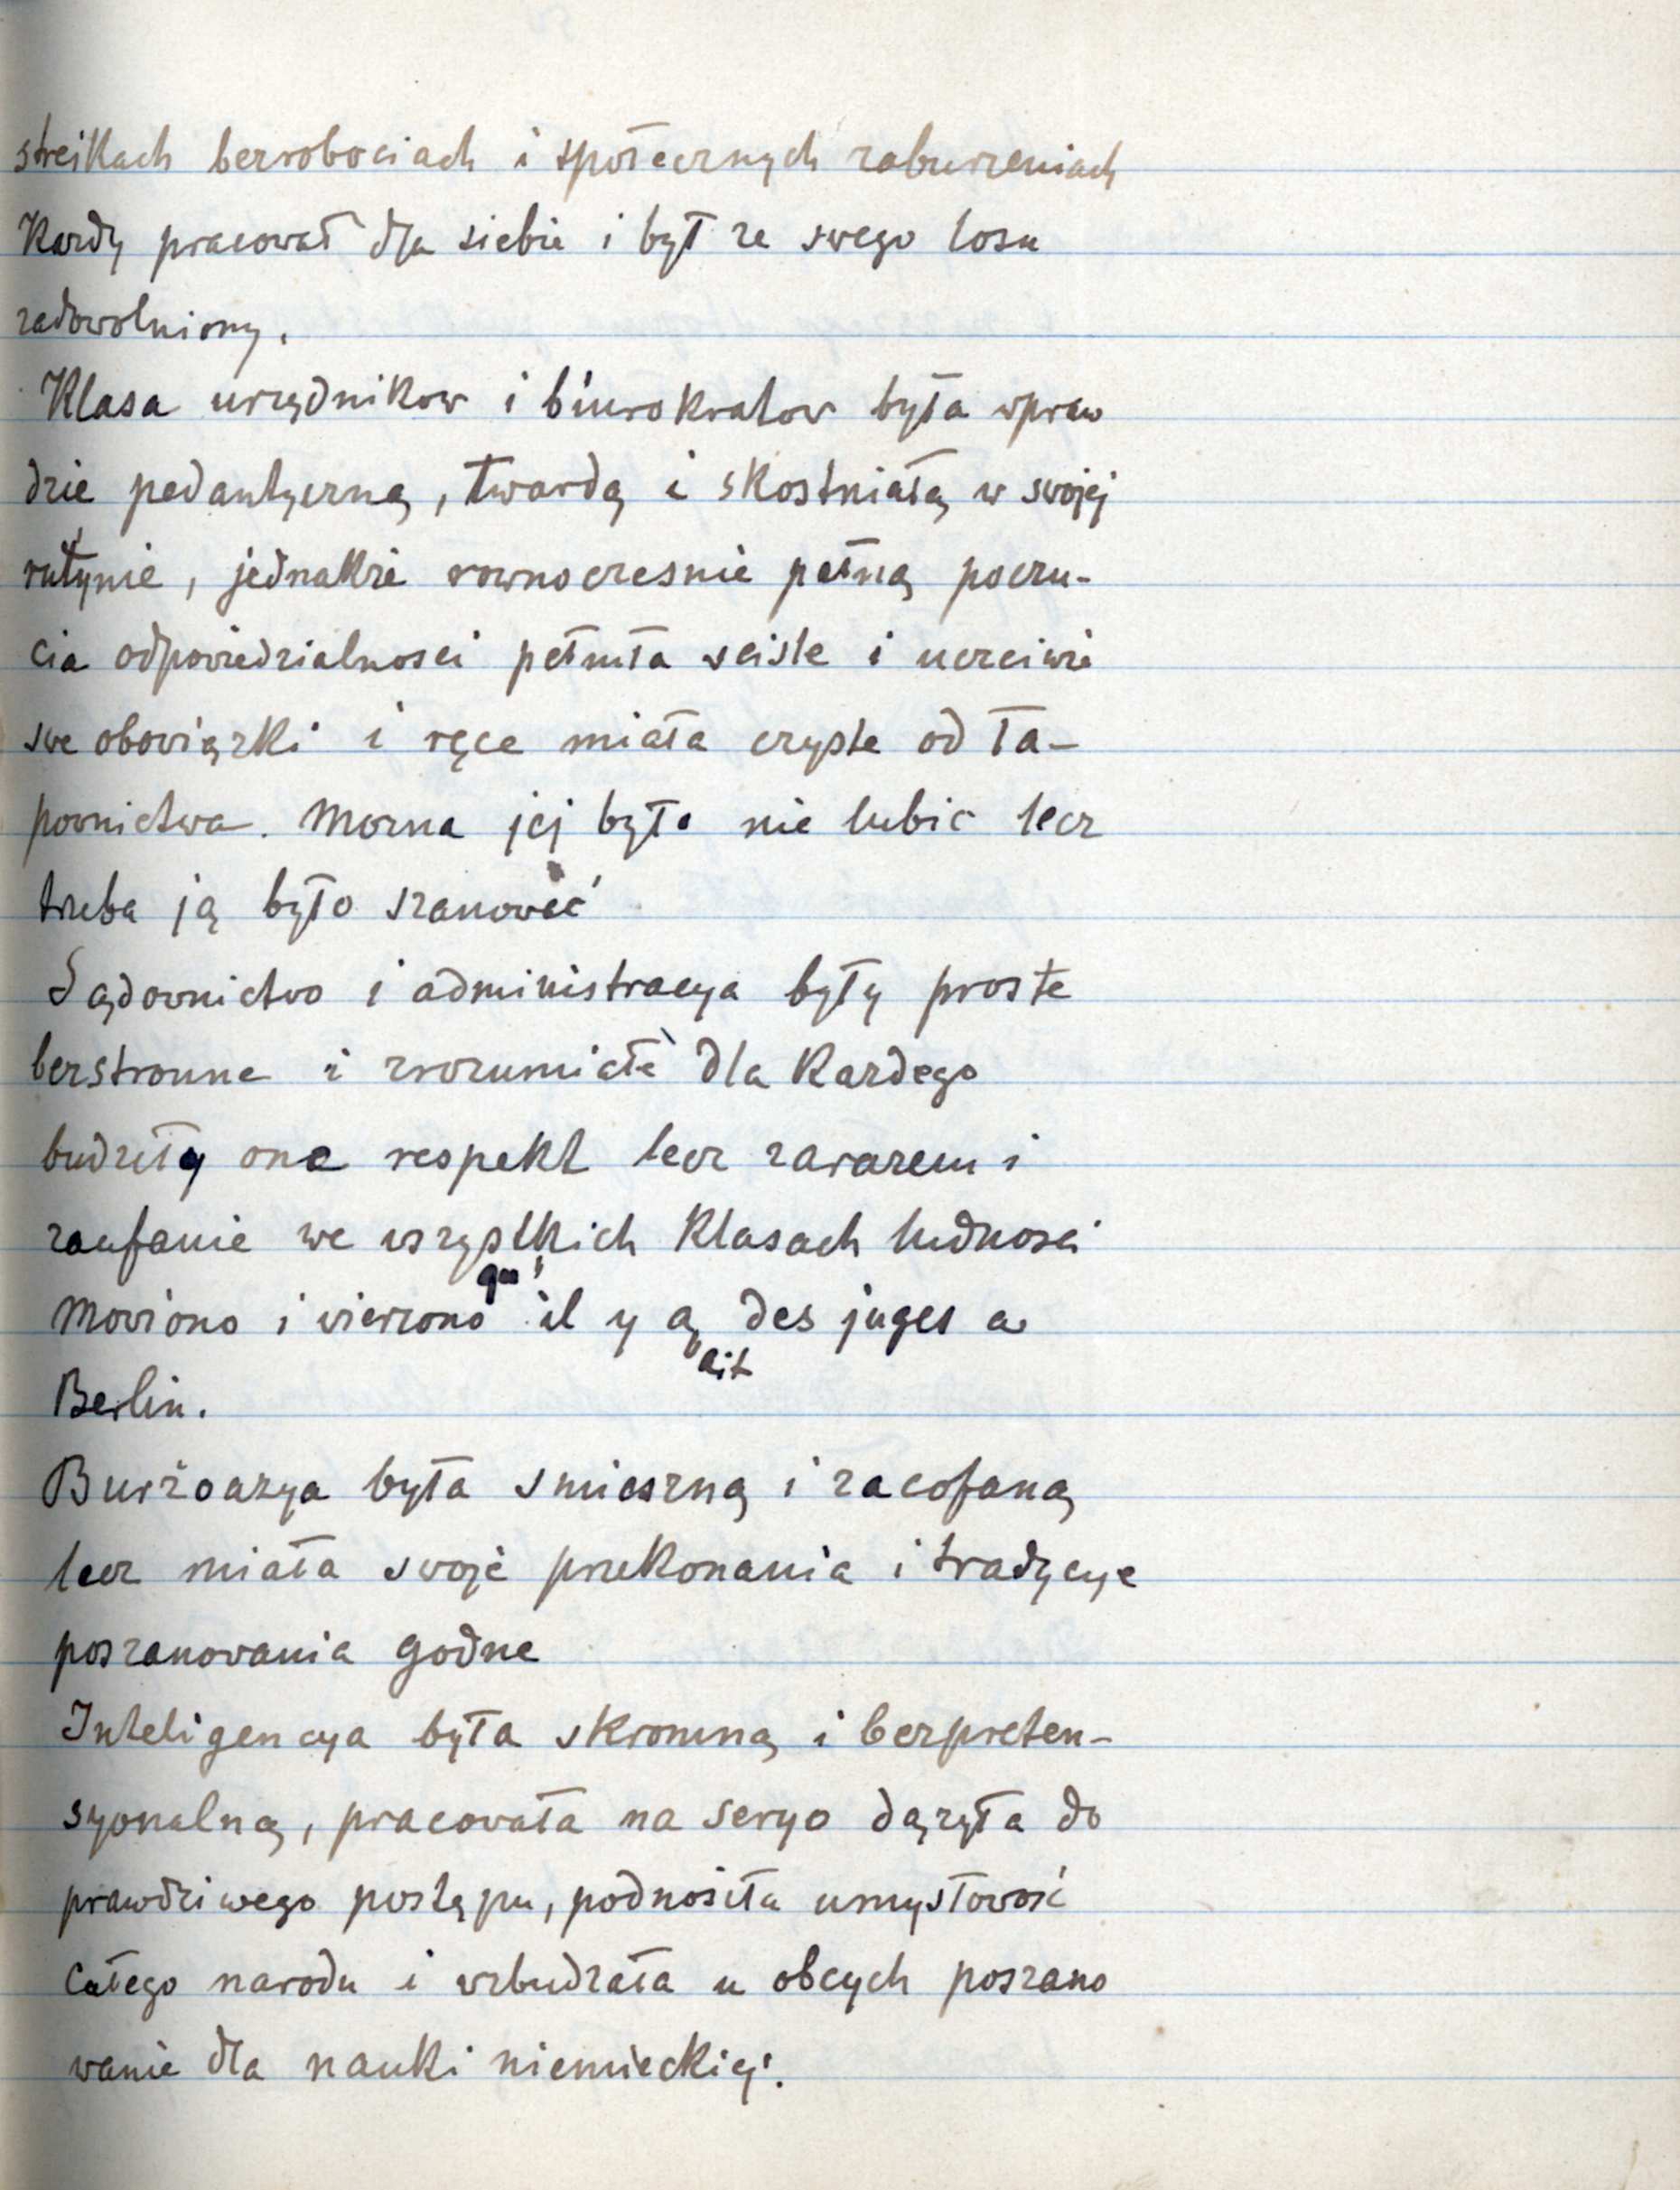 streikach bezrobociach i społecznych zaburzeniach
Kazdy pracował dla siebie i był ze swego losu
zadowolniony.
Klasa urzędnikow i biurokratow była wpraw
dzie pedantyczną, twardą i skostniałą w swojej
rutynie, jednakże rownoczesnie pełną poczu-
cia odpowiedzialnosci pełniła scisle i uczciwie
swe obowiązki i ręce miała czyste od ła-
pownictwa. Mozna jej było nie lubic lecz
trzeba ją było szanować
Sądownictwo i administracya były proste
bezstronne i zrozumiałe dla Kazdego
budziły one respekt lecz zarazem i
zaufanie we wszystkich Klasach ludnosci
Mowiono i wierzono qu'il y avait des juges a
Berlin.
Burżoazya była smieszną i zacofaną
lecz miała swoje przekonania i tradycye
poszanowania godne
Inteligencya była skromną i bezpreten-
syonalną, pracowała na seryo dązyła do
prawdziwego postępu, podnosiła umysłowość
całego narodu i wzbudzała u obcych poszano
wanie dla nauki niemieckiej.